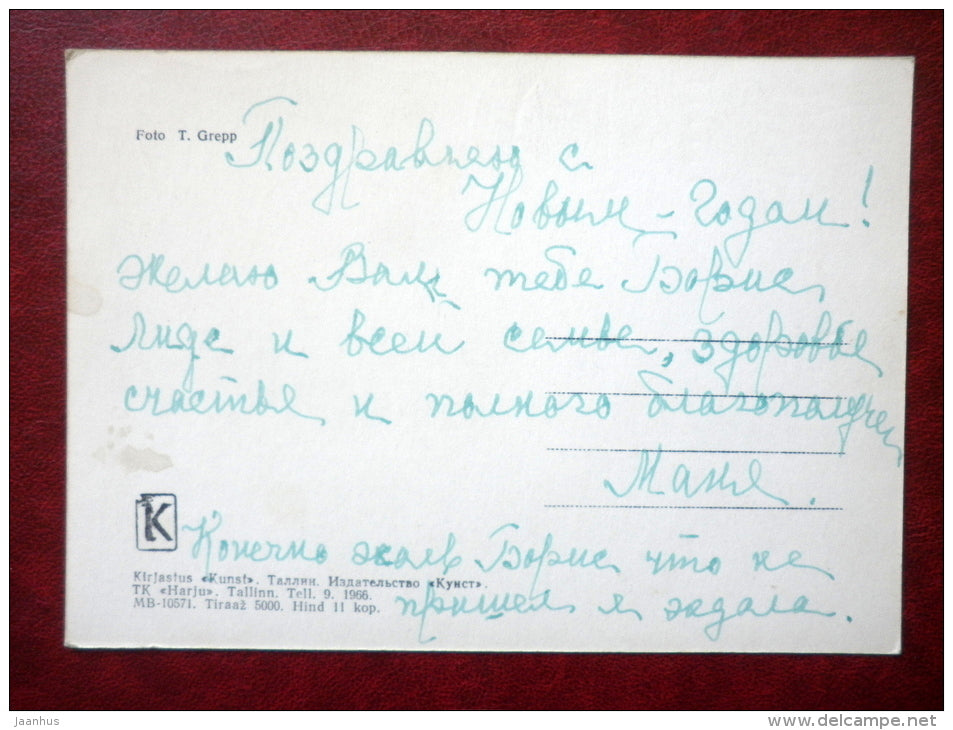 Foto T. Grepp
Поздравляю с
Новым-годом!
Желаю Вам, тебе Борис,
Лиде и всей семье, здоровье
счастья и полного благополучея
Маня.
K
Конечно жаль Борис что не
пришел я ждала.
Kirjastus «Kunst». Таллин. Издательство «Кунст».
TK «Harju». Tallinn. Tell. 9. 1966.
MB-10571. Tiraaž 5000. Hind 11 kop.
Jaanhus
www.delcampe.net